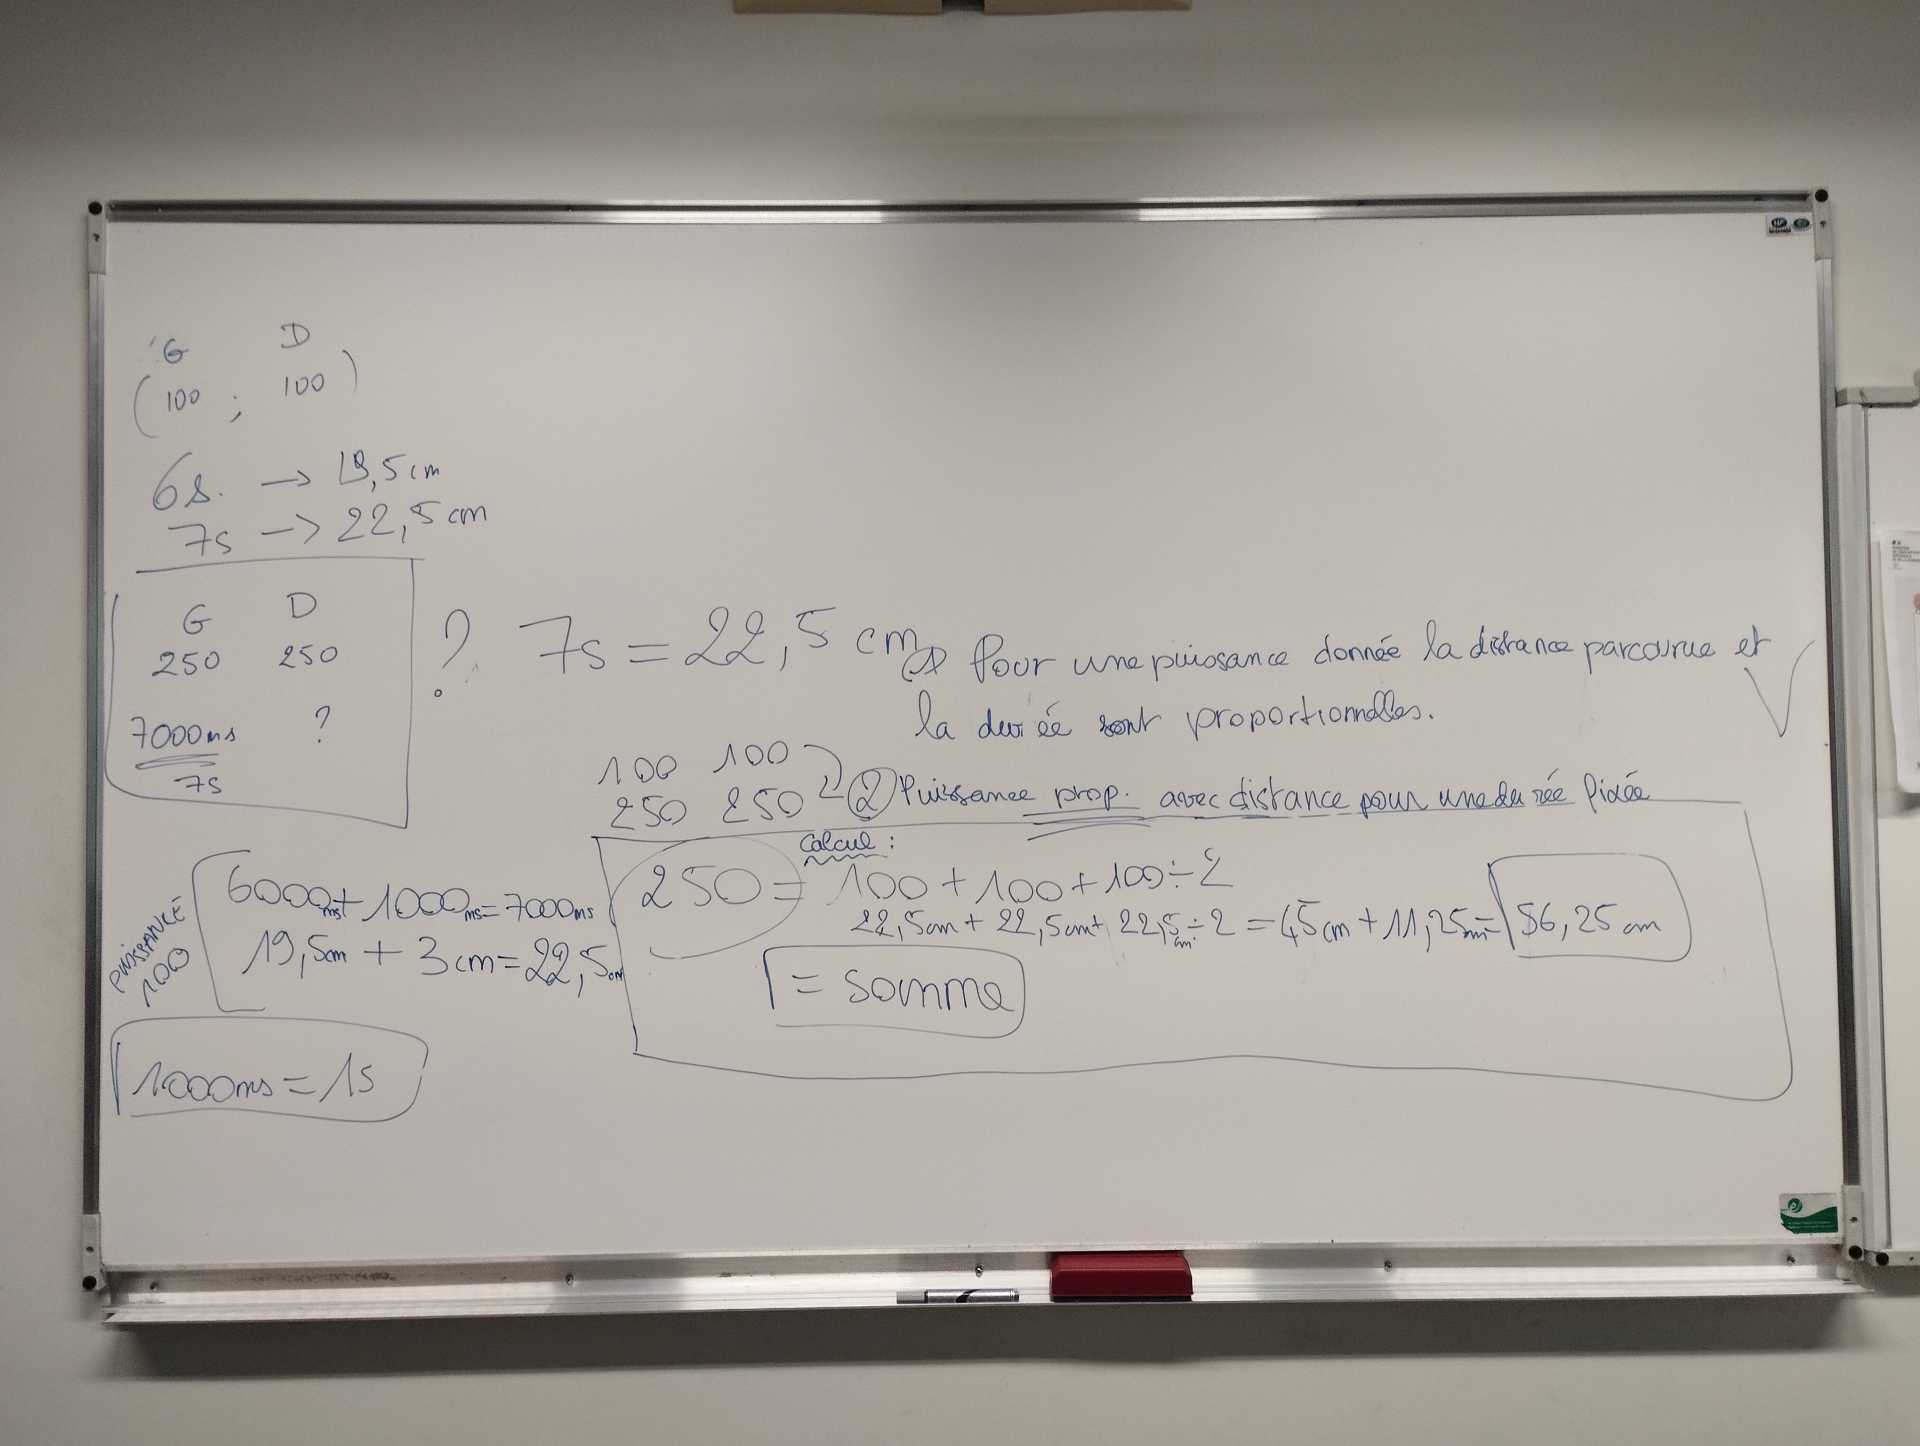 G D
(100 ; 100)
6s. → 19,5cm
7s → 22,5cm
G D
250 250
7000ms ?
7s
? 7s = 22,5 cm
① Pour une puissance donnée la distance parcourue et
la durée sont proportionnelles.
100 100
250 250
② Puissance prop. avec distance pour une durée fixée
Calcul :
250 = 100 + 100 + 100 ÷ 2
22,5cm + 22,5cm + 22,5cm ÷ 2 = 45cm + 11,25cm = 56,25 cm
= somme
PUISSANCE
100
6000ms + 1000ms = 7000ms
19,5cm + 3cm = 22,5cm
1000ms = 1s